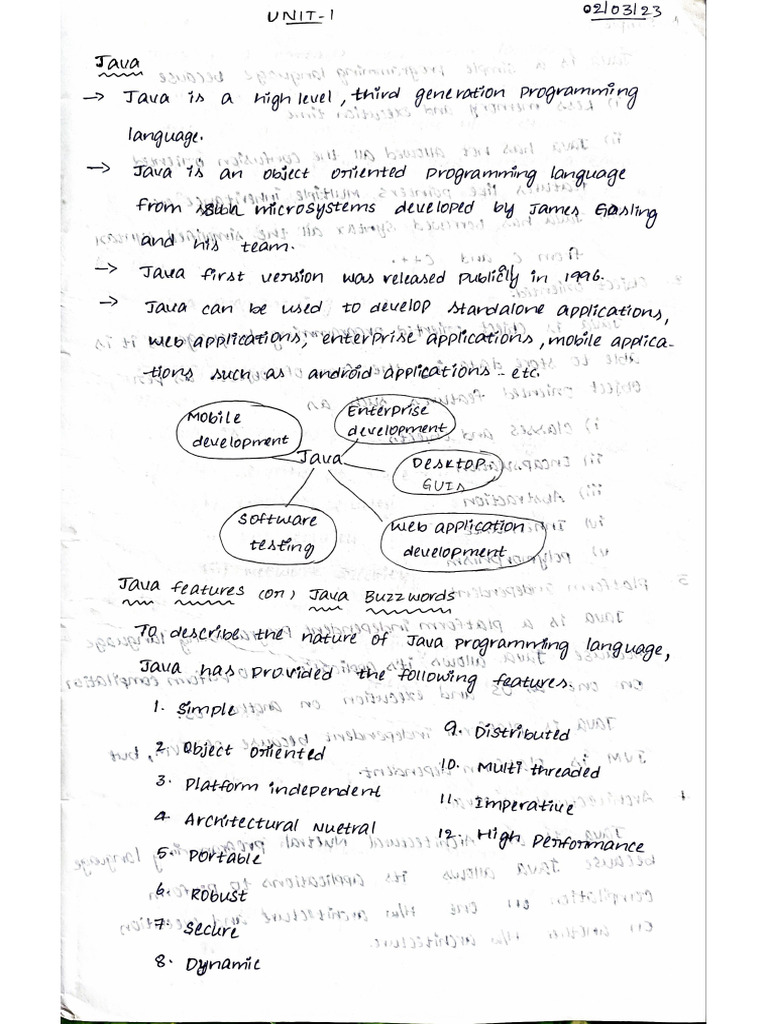 UNIT-1
02/03/23
Java
→ Java is a high level, third generation programming
language.
→ Java is an object oriented programming language
from microsystems developed by James Gosling
and his team.
→ Java first version was released publicly in 1996.
→ Java can be used to develop standalone applications,
web applications, enterprise applications, mobile applica-
-tions such as android applications -- etc.
Mobile
development
Enterprise
development
Java
Desktop
GUIs
Software
testing
Web application
development
Java features (or) Java Buzzwords
To describe the nature of Java programming language,
Java has provided the following features.
1. Simple
2. Object oriented
3. Platform independent
4. Architectural Nuetral
5. Portable
6. Robust
7. Secure
8. Dynamic
9. Distributed
10. Multi threaded
11. Imperative
12. High performance